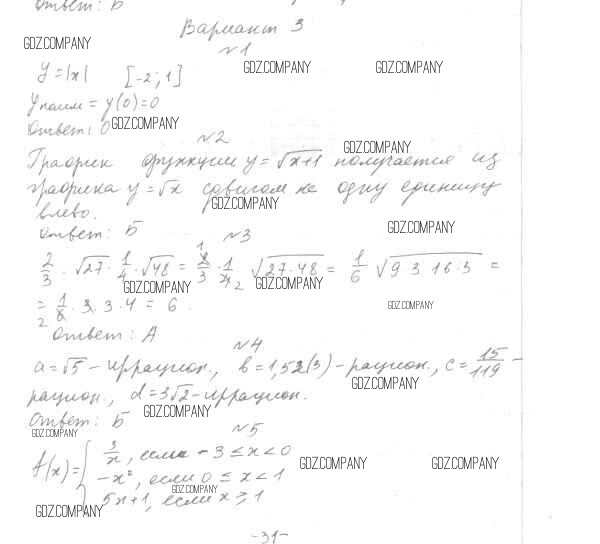 Ответ: Б
Вариант 3
№1
GDZ.COMPANY
GDZ.COMPANY GDZ.COMPANY
y = |x| [-2; 1]
y наим = y(0) = 0
Ответ: 0 GDZ.COMPANY
№2
GDZ.COMPANY
График функции y = √(x+1) получается из
графика y = √x сдвигом на одну единицу
влево.
GDZ.COMPANY
Ответ: Б
GDZ.COMPANY
№3
2/3 · √27 · 1/4 · √48 = 2/3 · 1/4 √(27·48) = 1/6 √(9·3·16·3) =
GDZ.COMPANY GDZ.COMPANY
= 1/6 · 3 · 3 · 4 = 6.
GDZ.COMPANY
Ответ: А
№4
a = √5 - иррацион., b = 1,52(3) - рацион., c = 15/119 -
GDZ.COMPANY
рацион., d = 3√2 - иррацион.
GDZ.COMPANY
Ответ: Б
GDZ.COMPANY
№5
f(x) = { 3/x, если -3 ≤ x < 0
-x², если 0 ≤ x < 1
5x+1, если x ≥ 1
GDZ.COMPANY GDZ.COMPANY
GDZ.COMPANY
GDZ.COMPANY
-31-